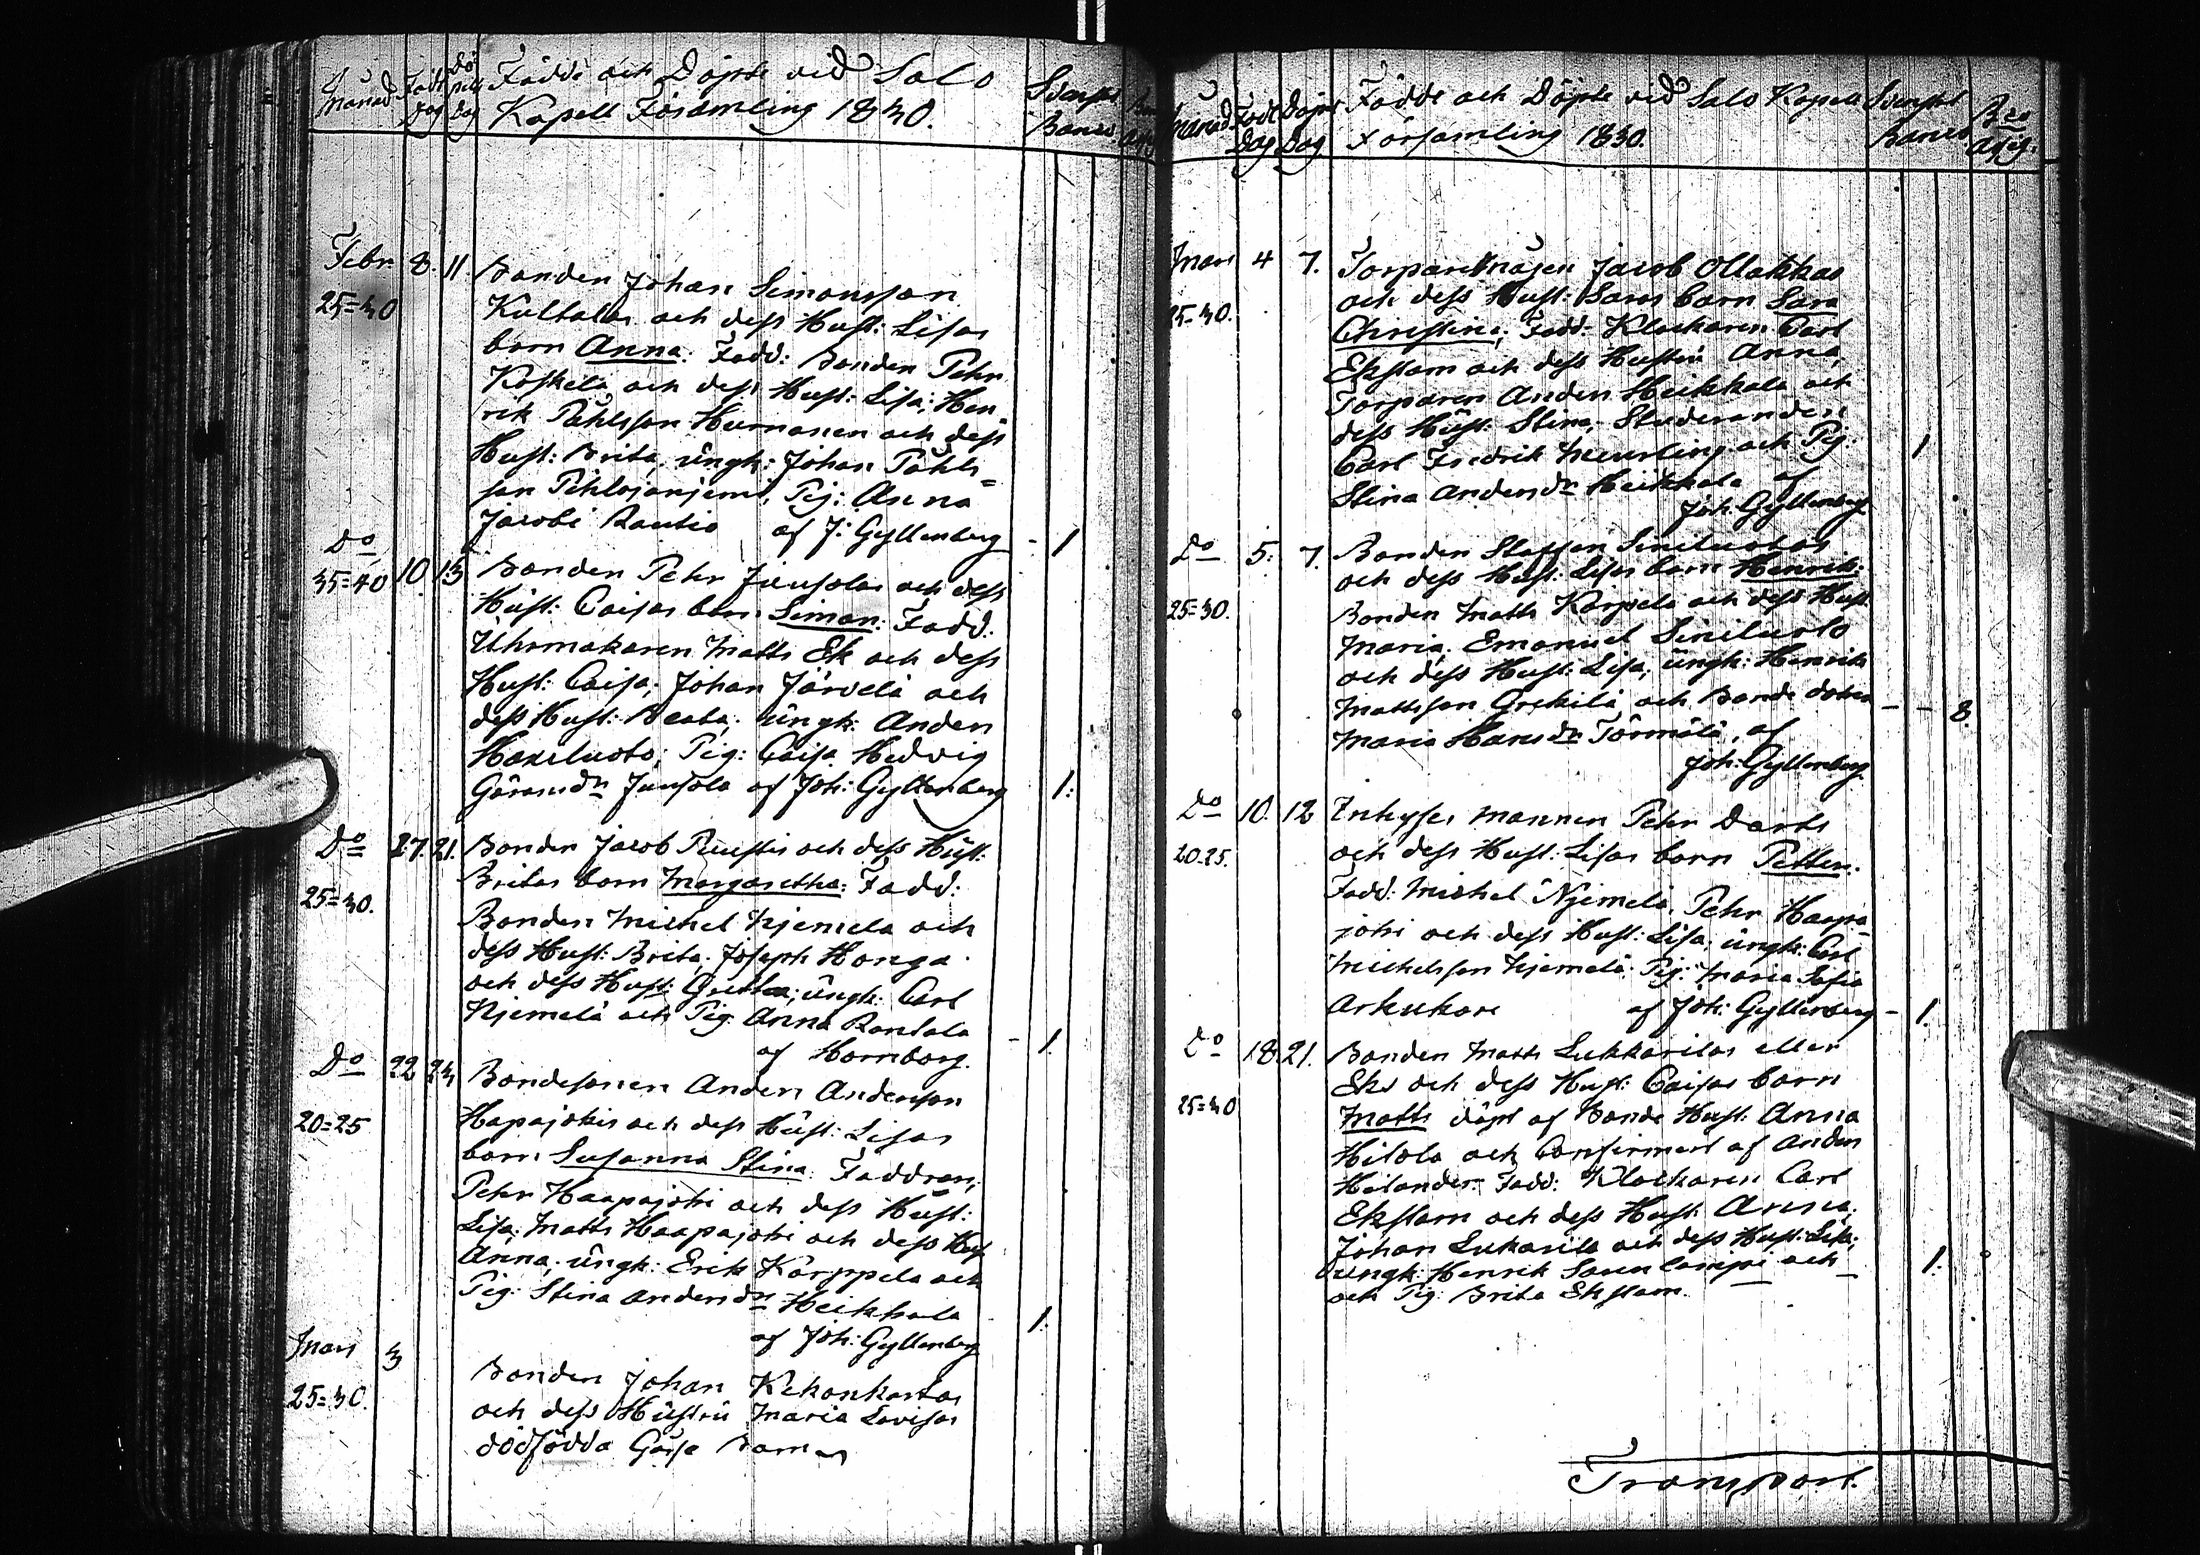 Månad Född Dag Döpte Dag Födde och Döpte vid Salo Svenskt
Kapell Församling 1830. Banco
Febr. 8. 11. Bonden Johan Simonsson
25=30 Kultalas och dess Hust: Lisas
barn Anna. Fadd: Bonden Pehr
Koskela och dess Hust: Lisa; Hen-
rik Påhlsson Hurnanen och dess
Hust: Brita, ûngk: Johan Påhls=
son Pehlojanjemi, Pig: Anna
Jacobi Rautio af J: Gyllenberg - 1
Do 10. 13 Bonden Pehr Junsolas och dess
35=40 Hust: Caisas barn Simon: Fadd.
Uhrmakaren Matts Ek och dess
Hust: Caisa; Johan Järvelä och
dess Hust: Beata; ûngk: Anders
Haxiluoto; Pig: Caisa Hedvig
Göransdr Junsola af Joh: Gyllenberg 1:
Do 17. 21. Bonden Jacob Ruustis och dess Hust:
25=30. Britas barn Margaretha: Fadd:
Bonden Michel Njemela och
dess Hust: Brita; Joseph Honga
och dess Hust: Gretha; ûngk: Carl
Njemelä och Pig: Anna Rantala
af Hornborg. - 1.
Do 22 23 Bondesonen Anders Andersson
20=25 Hapajokis och dess Hust: Lisas
barn Susanna Stina. Faddran,
Pehr Haapajoki och dess Hust:
Lisa; Matts Haapajoki och dess Hust
Anna; ûngk: Erik Kärppela och
Pig: Stina Andersdr Heikkala
af Joh: Gyllenberg 1:
Mars 3 Bonden Johan Kekonkartas
25=30. och dess Hustru Maria Lovisas
dödfödda Gåsse Barn
Månad Född Dag Döpte Dag Födde och Döpte vid Salo Kapell Svenskt Bco
Församling 1830. Banco Assig:
Mars 4 7. Torparemågen Jacob Ollakkas
25=30. och dess Hust: Saras barn Sara
Christina; Fadd: Klockaren Carl
Ekstam och dess Hustru Anna,
Torparen Anders Heikkala och
dess Hust: Stina, Studeranden
Carl Fredrik Meurling och Pig: 1
Stina Andersdr Heikkala af
Joh: Gyllenberg
Do 5. 7. Bonden Staffan Siniluotos
och dess Hust: Lisas barn Henrik:
25=30. Bonden Matts Karpela och dess Hust
Maria; Emanuel Siniluoto
och dess Hust: Lisa; ûngk: Henrik
Mattsson Grekilä och Bonde dotter - - 8.
Maria Hansdr Törmälä, af
Joh: Gyllenberg
Do 10. 12 Inhyses mannen Pehr Darts
20=25. och dess Hust: Lisas barn Petter.
Fadd: Michel Njemelä, Pehr Haapa-
joki och dess Hust: Lisa; ûngk: Carl
Michelsson Njemelä; Pig: Maria Sofia
Arkukare af Joh: Gyllenberg - 1.
Do 18. 21. Bonden Matts Lukkarilas eller
Eks och dess Hust: Caisas barn
25=30 Matts döpt af Bonde Hust: Anna
Hitola och Confirmert af Anders
Helander. Fadd: Klockaren Carl
Ekstam och dess Hust Anna;
Johan Lukarila och dess Hust: Lisa;
ungk: Henrik Savenlampi och 1:
och Pig: Brita Ekstam.
Transport.